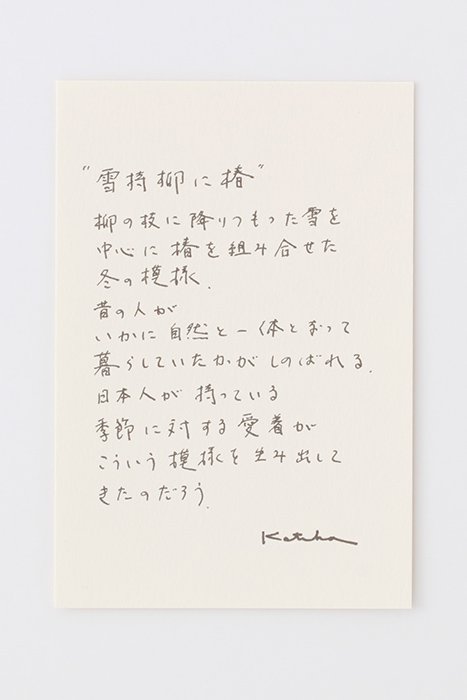 "雪持柳に椿"
柳の枝に降りつもった雪を
中心に椿を組み合せた
冬の模様.
昔の人が
いかに自然と一体となって
暮らしていたかがしのばれる.
日本人が持っている
季節に対する愛着が
こういう模様を生み出して
きたのだろう.